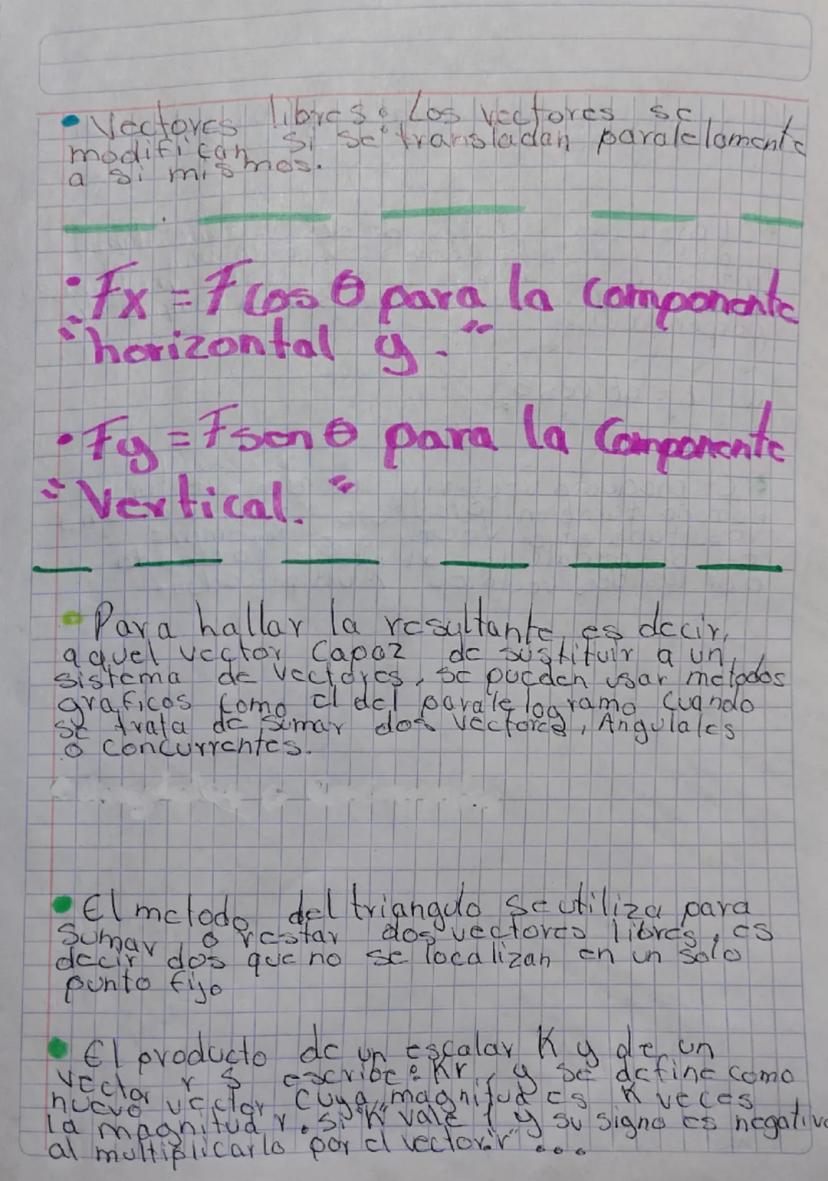 • Vectores libres: Los vectores se
modifican si se transladan paralelamente
a si mismos.
: Fx = F cos θ para la componente
"horizontal y."
• Fy = F sen θ para la Componente
"Vertical."
• Para hallar la resultante, es decir,
aquel vector capaz de sustituir a un
sistema de vectores, se pueden usar metodos
graficos como el del paralelogramo cuando
se trata de sumar dos vectores, Angulales
o concurrentes.
• El metodo del triangulo se utiliza para
sumar o restar dos vectores libres, es
decir dos que no se localizan en un solo
punto fijo
• El producto de un escalar K y de un
vector r s escribe: Kr, y se define como
nuevo vector cuya magnitud es K veces
la magnitud r. si "K" vale 1 y su signo es negativo
al multiplicarlo por el vector "r" ...